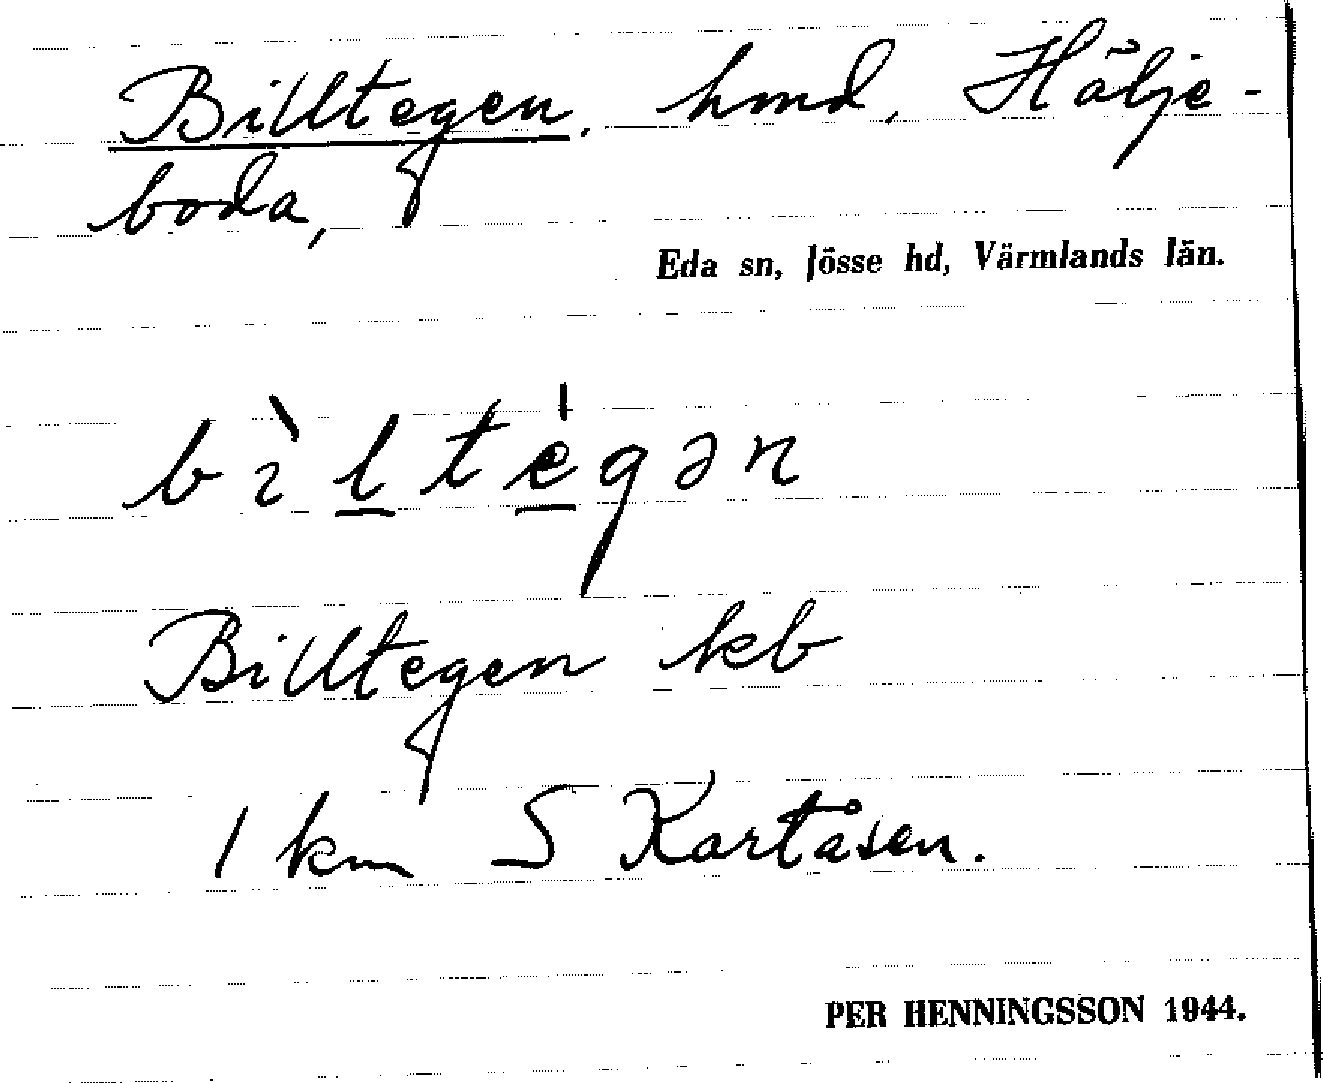 Billtegen, hmd, Hälje-
boda,
Eda sn, Jösse hd, Värmlands län.
bìltégən
Billtegen kb
1 km S Kartåsen.
PER HENNINGSSON 1944.